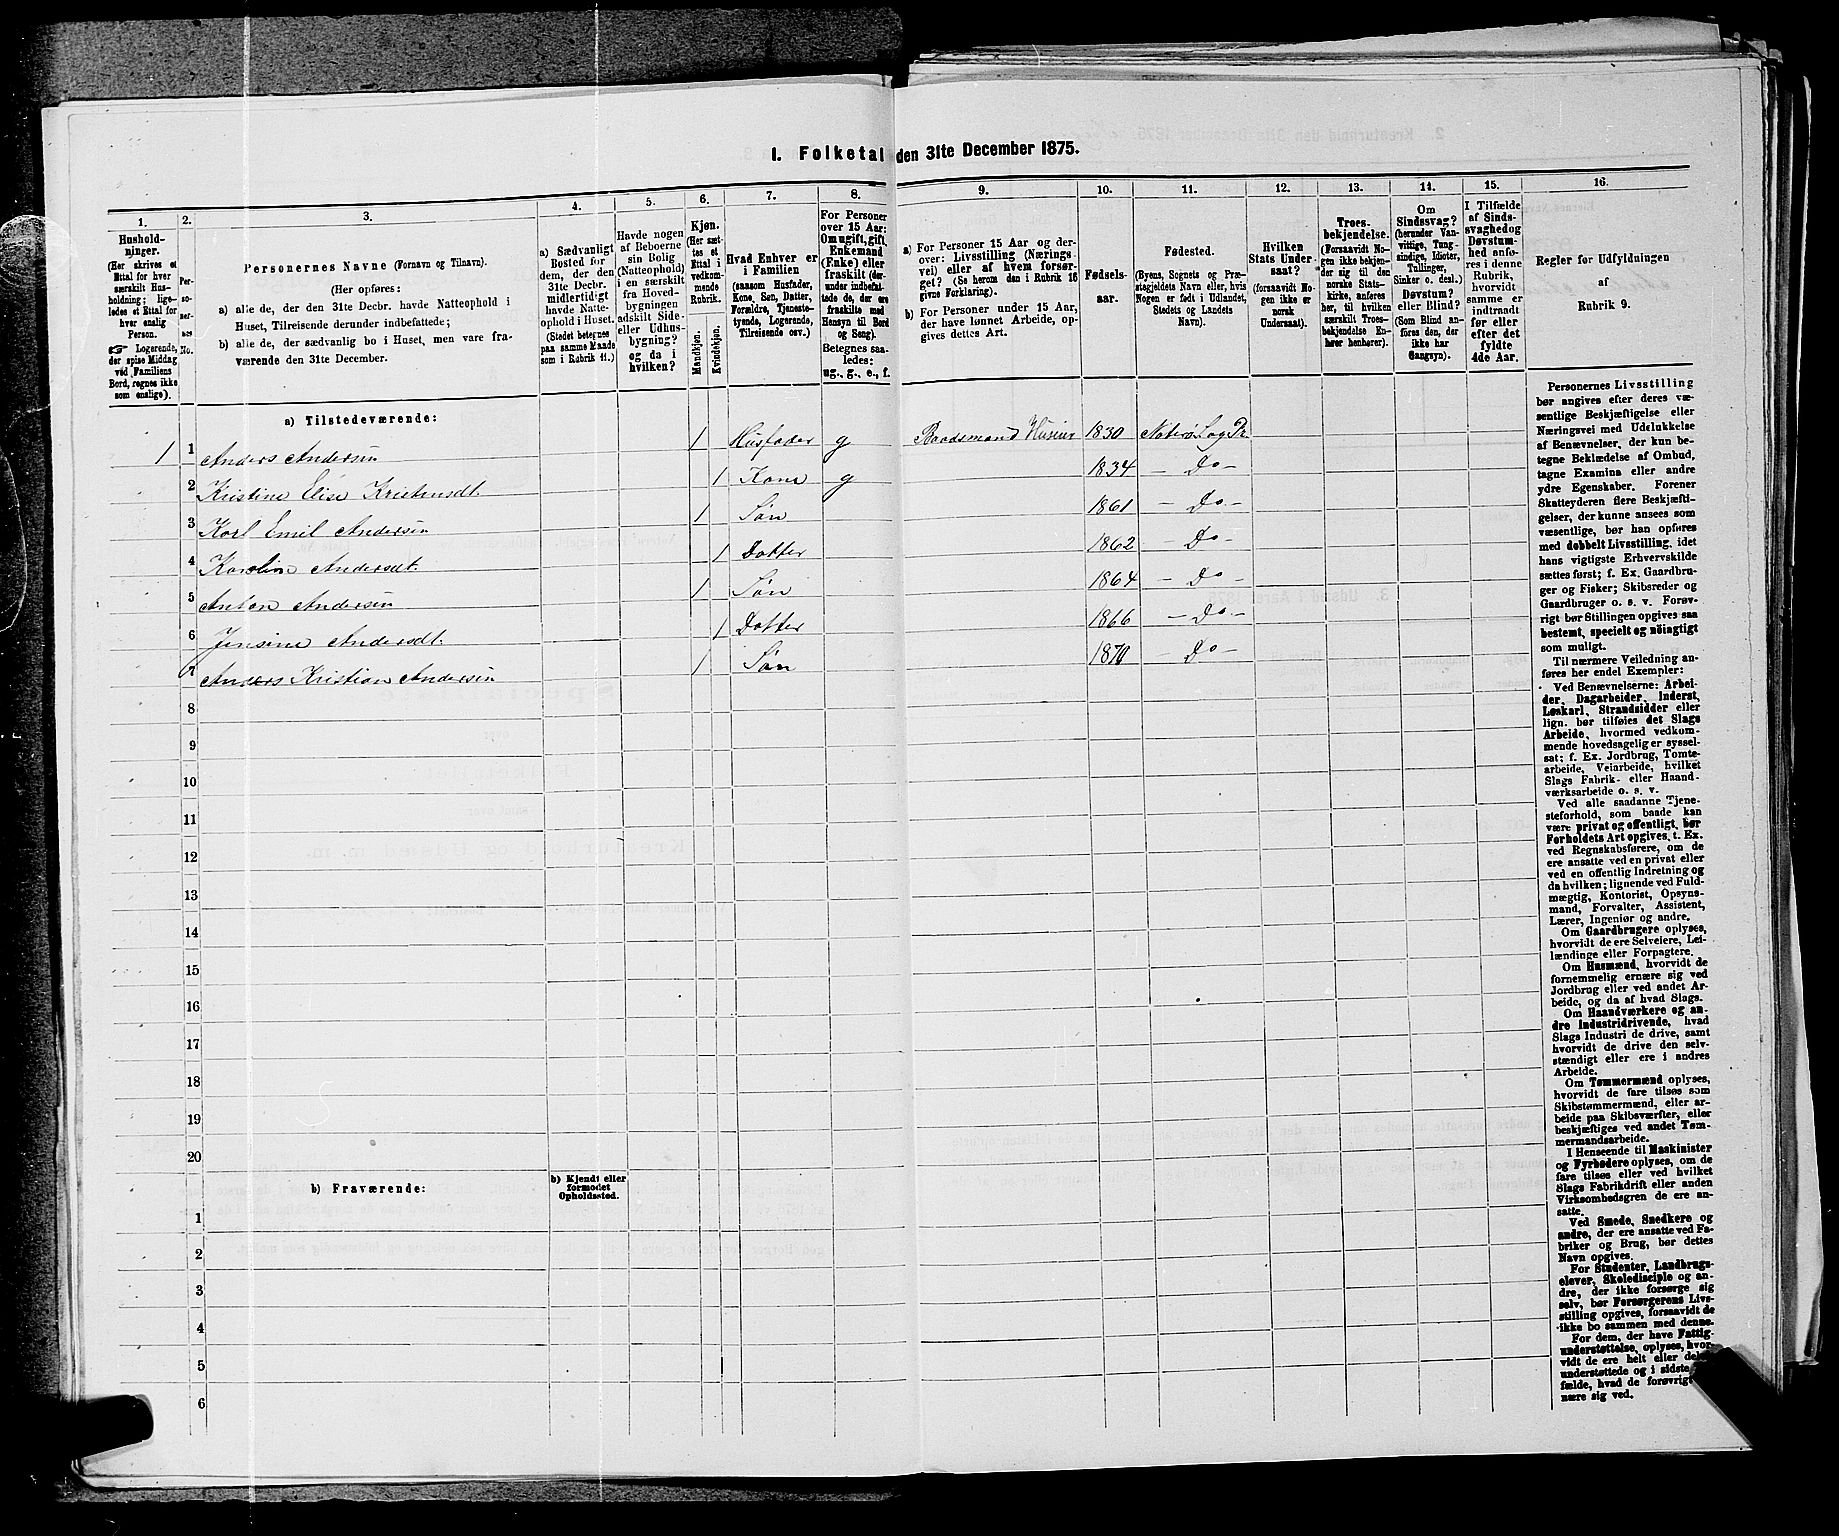 I. Folketal den 31te December 1875.
1. 2. 3. 4. 5. 6. 7. 8. 9. 10. 11. 12. 13. 14. 15. 16.
Hushold-
ninger.
(Her skrives et
Ettal for hver
særskilt Hus-
holdning; lige-
ledes et Ettal for
hver enslig
Person.
☞ Logerende,
der spise Middag
ved Familiens
Bord, regnes ikke
som enslige).
Per-
so-
ner-
nes
No.
Personernes Navne (Fornavn og Tilnavn).
(Her opføres:
a) alle de, der den 31te Decbr. havde Natteophold i
Huset, Tilreisende derunder indbefattede;
b) alle de, der sædvanlig bo i Huset, men vare fra-
værende den 31te December.
a) Sædvanligt
Bosted for
dem, der den
31te Decbr.
midlertidigt
havde Natte-
ophold i Huset.
(Stedet betegnes
paa samme Maade
som i Rubrik 11.)
Havde nogen
af Beboerne
sin Bolig
(Natteophold)
i en særskilt
fra Hoved-
bygningen
adskilt Side-
eller Udhus-
bygning?
og da i
hvilken?
Kjøn.
(Her sæt-
tes et
Ettal i
vedkom-
mende
Rubrik.
Mandkjøn.
Kvindekjøn.
Hvad Enhver er
i Familien
(saasom Husfader,
Kone, Søn, Datter,
Forældre, Tjeneste-
tyende, Logerende,
Tilreisende osv.)
For Personer
over 15 Aar:
Om ugift, gift,
Enkemand
(Enke) eller
fraskilt (der-
under indbefat-
tede de, der ere
fraskilte med
Hensyn til Bord
og Seng).
Betegnes saa-
ledes:
ug., g., e., f.
a) For Personer 15 Aar og der-
over: Livsstilling (Nærings-
vei) eller af hvem forsør-
get? (Se herom den i Rubrik 16
givne Forklaring).
b) For Personer under 15 Aar,
der have lønnet Arbeide, op-
gives dettes Art.
Fødsels-
aar.
Fødested.
(Byens, Sognets og Præ-
stegjeldets Navn eller, hvis
Nogen er født i Udlandet,
Stedets og Landets
Navn).
Hvilken
Stats Under-
saat?
(forsaavidt No-
gen ikke er
norsk
Undersaat).
Troes-
bekjendelse.
(Forsaavidt No-
gen ikke bekjen-
der sig til den
norske Stats-
kirke, anføres
her, til hvilken
særskilt Troes-
bekjendelse En-
hver henhører).
Om
Sindssvag?
(herunder Van-
vittige, Tung-
sindige, Idioter,
Tullinger,
Sinker o. desl.)
Døvstum?
eller Blind?
(Som Blind an-
føres den, der
ikke har
Gangsyn).
I Tilfælde
af Sinds-
svaghed og
Døvstum-
hed anfø-
res i denne
Rubrik,
hvorvidt
samme er
indtraadt
før eller
efter det
fyldte
4de Aar.
Regler for Udfyldningen
af
Rubrik 9.
a) Tilstedeværende:
1 1 Anders Andersen 1 Husfader g Baadsmand Huseier 1830 Nøterø Sog Pr.
2 Kristine Elise Kristensdt. 1 Kone g 1834 – Do –
3 Karl Emil Andersen 1 Søn 1861 – Do –
4 Karolin Andersdt. 1 Datter 1862 – Do –
5 Anton Andersen 1 Søn 1864 – Do –
6 Jensine Andersdt. 1 Datter 1866 – Do –
7 Anders Kristian Andersen 1 Søn 1870 – Do –
8
9
10
11
12
13
14
15
16
17
18
19
20
b) Fraværende:
b) Kjendt eller
formodet
Opholdssted.
1
2
3
4
5
6
Personernes Livsstilling
bør angives efter deres væ-
sentlige Beskjæftigelse eller
Næringsvei med Udelukkelse
af Benævnelser, der kun be-
tegne Beklædelse af Ombud,
tagne Examina eller andre
ydre Egenskaber. Forener
Skatteyderen flere Beskjæfti-
gelser, der kunne ansees som
væsentlige, bør han opføres
med dobbelt Livsstilling, idet
hans vigtigste Erhvervskilde
sættes først; f. Ex. Gaardbru-
ger og Fisker; Skibsreder og
Gaardbruger o. s. v. Forøv-
rigt bør Stillingen opgives saa
bestemt, specielt og nöiagtigt
som muligt.
Til nærmere Veiledning an-
føres her endel Exempler:
Ved Benævnelserne: Arbei-
der, Dagarbeider, Inderst,
Løskarl, Strandsidder eller
lign. bør tilføies det Slags
Arbeide, hvormed vedkom-
mende hovedsagelig er syssel-
sat; f. Ex. Jordbrug, Tomte-
arbeide, Veiarbeide, hvilket
Slags Fabrik- eller Haand-
værksarbeide o. s. v.
Ved alle saadanne Tjene-
steforhold, som baade kan
være privat og offentligt, bør
Forholdets Art opgives, t. Ex.
ved Regnskabsførere, om de
ere ansatte ved en privat eller
ved en offentlig Indretning og
da hvilken; lignende ved Fuld-
mægtig, Kontorist, Opsyns-
mand, Forvalter, Assistent,
Lærer, Ingeniør og andre.
Om Gaardbrugere oplyses,
hvorvidt de ere Selveiere, Lei-
lændinge eller Forpagtere.
Om Husmænd, hvorvidt de
fornemmelig ernære sig ved
Jordbrug eller ved andet Ar-
beide, og da af hvad Slags.
Om Haandværkere og an-
dre Industridrivende, hvad
Slags Industri de drive, samt
hvorvidt de drive den selv-
stændigt eller ere i andres
Arbeide.
Om Tømmermænd oplyses,
hvorvidt de fare tilsøs som
Skibstømmermænd, eller ar-
beide paa Skibsværfter, eller
beskjæftiges ved andet Tøm-
mermandsarbeide.
I Henseende til Maskinister
og Fyrbødere oplyses, om de
fare tilsøs eller ved hvilket
Slags Fabrikdrift eller anden
Virksomhedsgren de ere an-
satte.
Ved Smede, Snedkere og
andre, der ere ansatte ved Fa-
briker og Brug, bør dettes
Navn opgives.
For Studenter, Landbrugs-
elever, Skoledisciple og an-
dre, der ikke forsørge sig
selv, bør Forsørgerens Livs-
stilling opgives, forsaavidt de
ikke bo sammen med denne.
For dem, der have Fattig-
understøttelse, oplyses, hvor-
vidt de ere helt eller del
understøttede og i sidste
fælde, hvad de forøvrigt
nære sig ved.